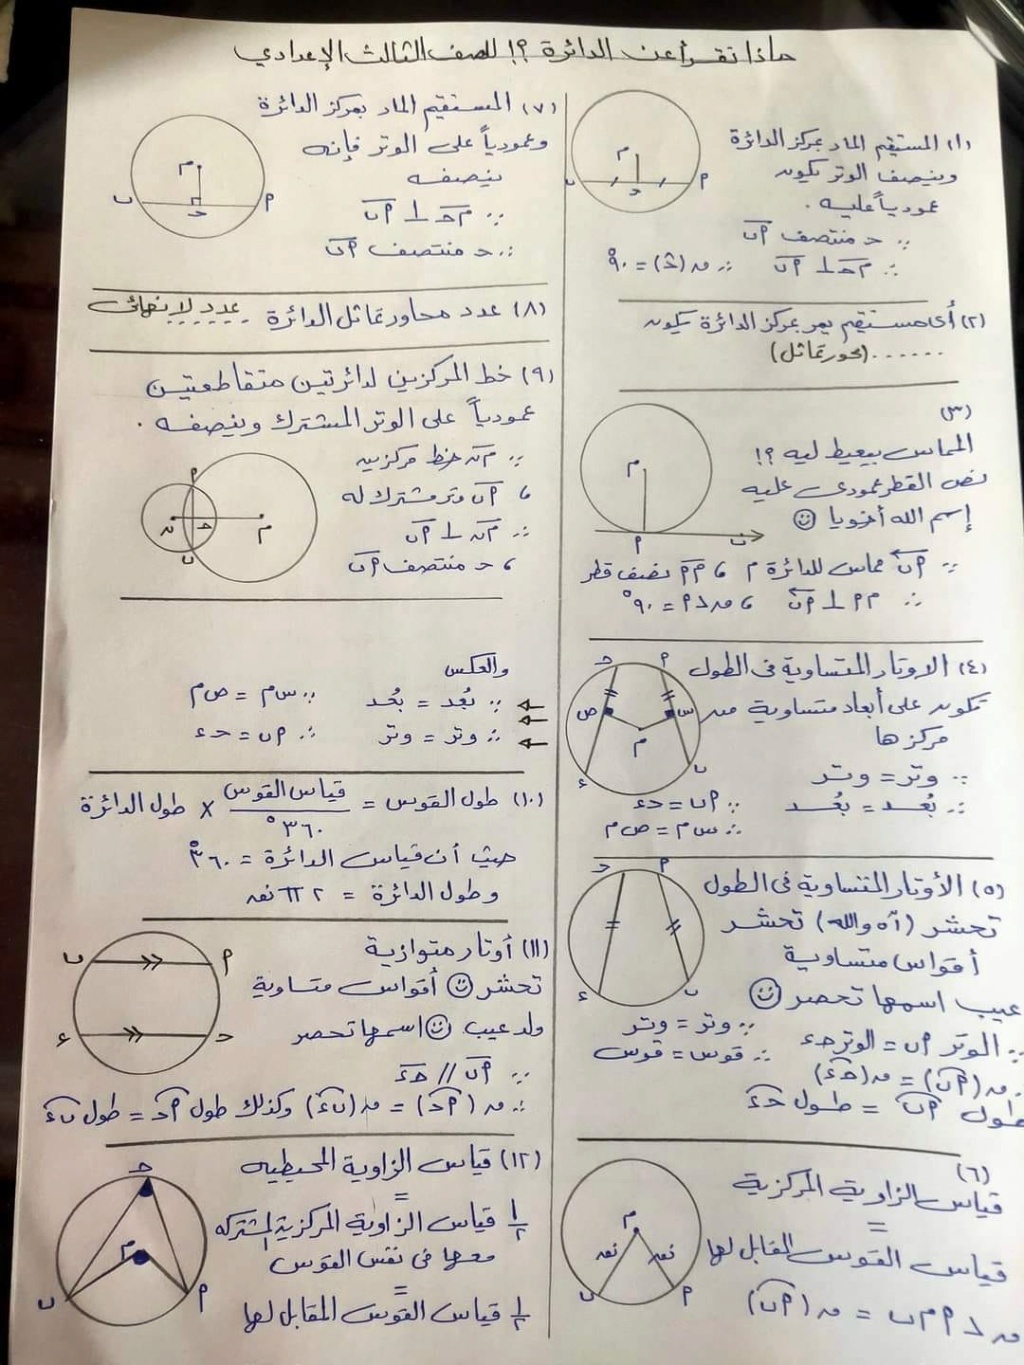 ماذا تقرأ عن الدائرة ؟! للصف الثالث الإعدادي
(١) المستقيم المار بمركز الدائرة
وينصف الوتر يكون
عمودياً عليه .
م
ب
ح
أ
∵ ح منتصف أب
∴ م ح ⊥ أب ∴ ق(ح) = ٩٠°
(٢) أى مستقيم يمر بمركز الدائرة يكون
...... (محور تماثل)
(٣)
المماس بيعيط ليه ؟!
نص القطر عمودى عليه
إسم الله أخويا ☺
م
أ
ب
∵ أب مماس للدائرة م ، م أ نصف قطر
∴ م أ ⊥ أب ، ق ∠ أ = ٩٠°
(٤) الاوتار المتساوية فى الطول
تكون على أبعاد متساوية من
مركزها
ح
أ
ص
س
م
ء
ب
∵ وتر = وتر
∴ بُعد = بُعد ∵ أب = ح ء
∴ س م = ص م
(٥) الأوتار المتساوية فى الطول
تحشر (آه والله) تحشر
أقواس متساوية
عيب اسمها تحصر ☺
ح
أ
ء
ب
∵ وتر = وتر
∵ الوتر أب = الوتر ح ء ∴ قوس = قوس
∴ ق(أب) = ق(ح ء)
طول أب = طول ح ء
(٦)
قياس الزاوية المركزية
=
قياس القوس المقابل لها
ق ∠ أ م ب = ق(أب)
م
نق
نق
ب
أ
(٧) المستقيم المار بمركز الدائرة
وعمودياً على الوتر فإنه
ينصفه
م
ب
ح
أ
∵ م ح ⊥ أب
∴ ح منتصف أب
(٨) عدد محاور تماثل الدائرة عدد لا نهائى
(٩) خط المركزين لدائرتين متقاطعتين
عمودياً على الوتر المشترك وينصفه .
∵ م ن خط مركزين
، أب وتر مشترك له
∴ م ن ⊥ أب
، ح منتصف أب
أ
ن
ح
م
ب
والعكس
∵ بُعد = بُعد ∵ س م = ص م
∴ وتر = وتر ∴ أب = ح ء
(١٠) طول القوس = قياس القوس / ٣٦٠° × طول الدائرة
حيث أن قياس الدائرة = ٣٦٠°
وطول الدائرة = ٢ π نق
(١١) أوتار متوازية
تحشر ☺ أقواس متساوية
ولد عيب ☺ اسمها تحصر
ب
أ
ء
ح
∵ أب // ح ء
∴ ق(أ ح) = ق(ب ء) وكذلك طول أ ح = طول ب ء
(١٢) قياس الزاوية المحيطيه
=
١/٢ قياس الزاوية المركزية المشتركه
معها فى نفس القوس
=
١/٢ قياس القوس المقابل لها
ح
م
ب
أ